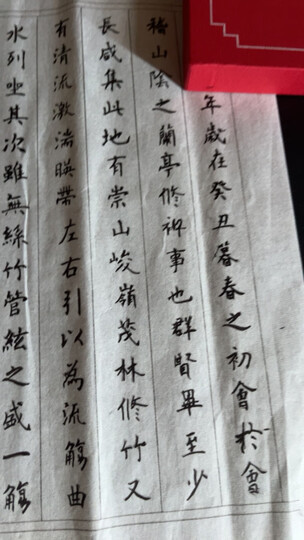 年歲在癸丑暮春之初會於會
稽山陰之蘭亭修禊事也群賢畢至少
長咸集此地有崇山峻嶺茂林修竹又
有清流激湍暎帶左右引以為流觴曲
水列坐其次雖無絲竹管絃之盛一觴